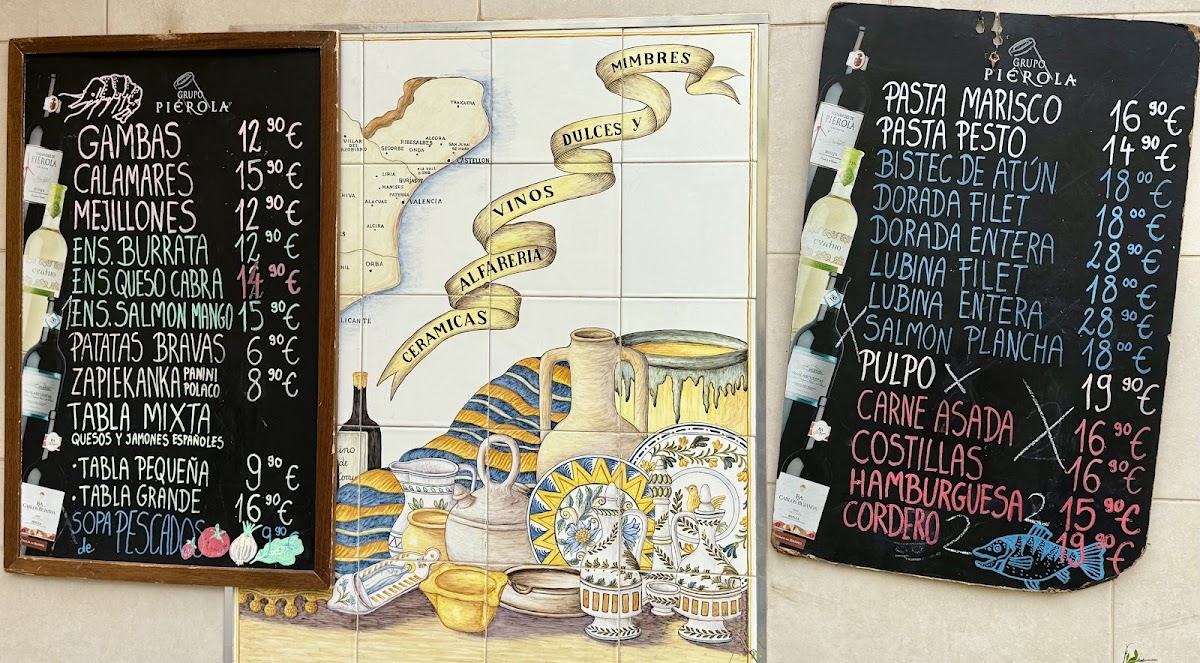 GRUPO
PIÉROLA
GAMBAS 12,90 €
CALAMARES 15,90 €
MEJILLONES 12,90 €
ENS. BURRATA 12,90 €
ENS. QUESO CABRA 14,90 €
ENS. SALMON MANGO 15,90 €
PATATAS BRAVAS 6,90 €
ZAPIEKANKA PANINI POLACO 8,90 €
TABLA MIXTA
QUESOS Y JAMONES ESPAÑOLES
· TABLA PEQUEÑA 9,90 €
· TABLA GRANDE 16,90 €
SOPA de PESCADOS 9,90
MIMBRES
DULCES Y
VINOS
ALFARERIA
CERAMICAS
TRAIGUERA
ALCORA
RIBESALBES
SEGORBE
ONDA
CASTELLON
LIRIA
BURJASOT
MANISES
PATERNA
VALENCIA
ALACUAS
ALCIRA
ORBA
ALICANTE
GRUPO
PIÉROLA
PASTA MARISCO 16,90 €
PASTA PESTO 14,90 €
BISTEC DE ATÚN 18,00 €
DORADA FILET 18,00 €
DORADA ENTERA 28,90 €
LUBINA FILET 18,00 €
LUBINA ENTERA 28,90 €
X SALMON PLANCHA 18,00 €
PULPO X 19,90 €
CARNE ASADA X 16,90 €
COSTILLAS 16,90 €
HAMBURGUESA 2 15,90 €
CORDERO 2 19,90 €